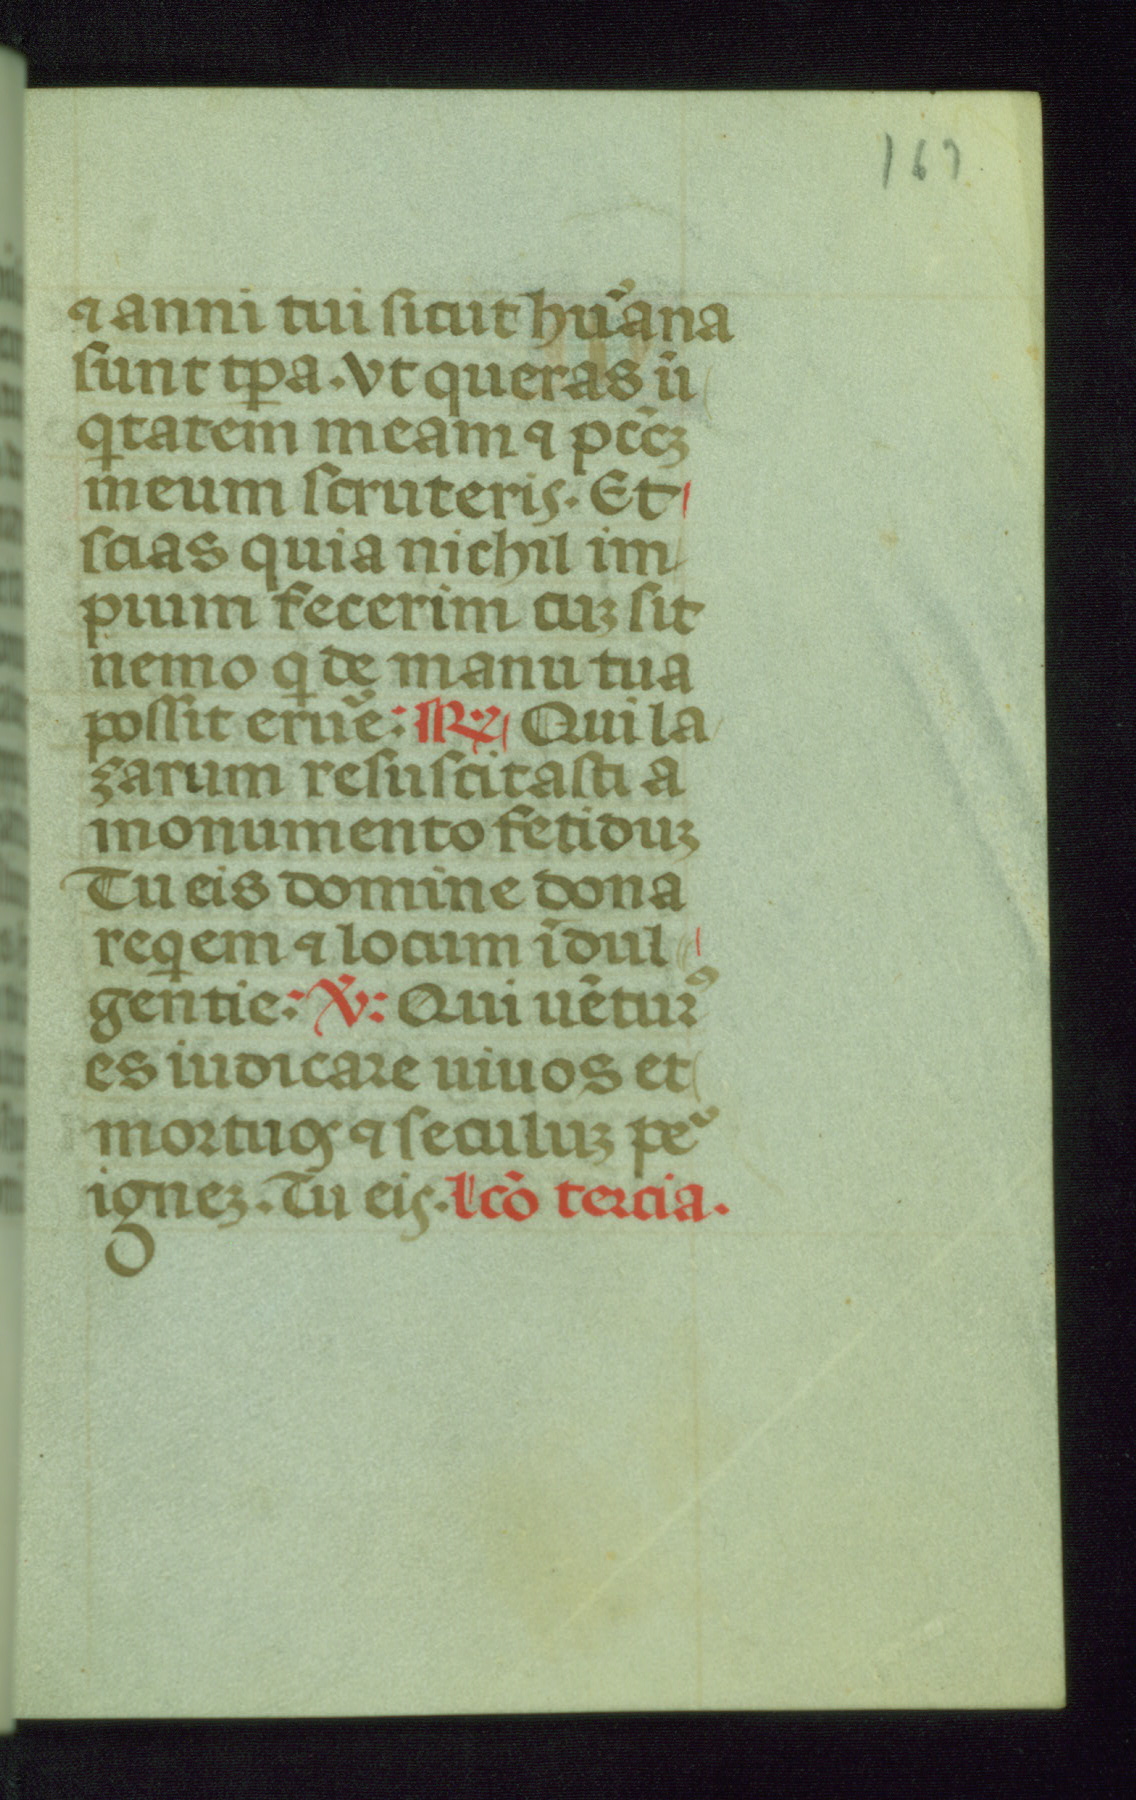 167
⁊ anni tui sicut hūana
sunt tp̄a. Vt queras ī
qͥtatem meam ⁊ pccꝫ
meum scruteris. Et
scias quia nichil im
pium fecerim cuꝫ sit
nemo qͥ de manu tua
possit eruēe: ℟ Qui la
zarum resuscitasti a
monumento fetiduꝫ
Tu eis domine dona
reqͥem ⁊ locum īdul
gentie: ℣: Qui uētur᷒
es iudicare uiuos et
mortuos ⁊ seculuꝫ pe
ignez. Tu eis. lcō tercia.